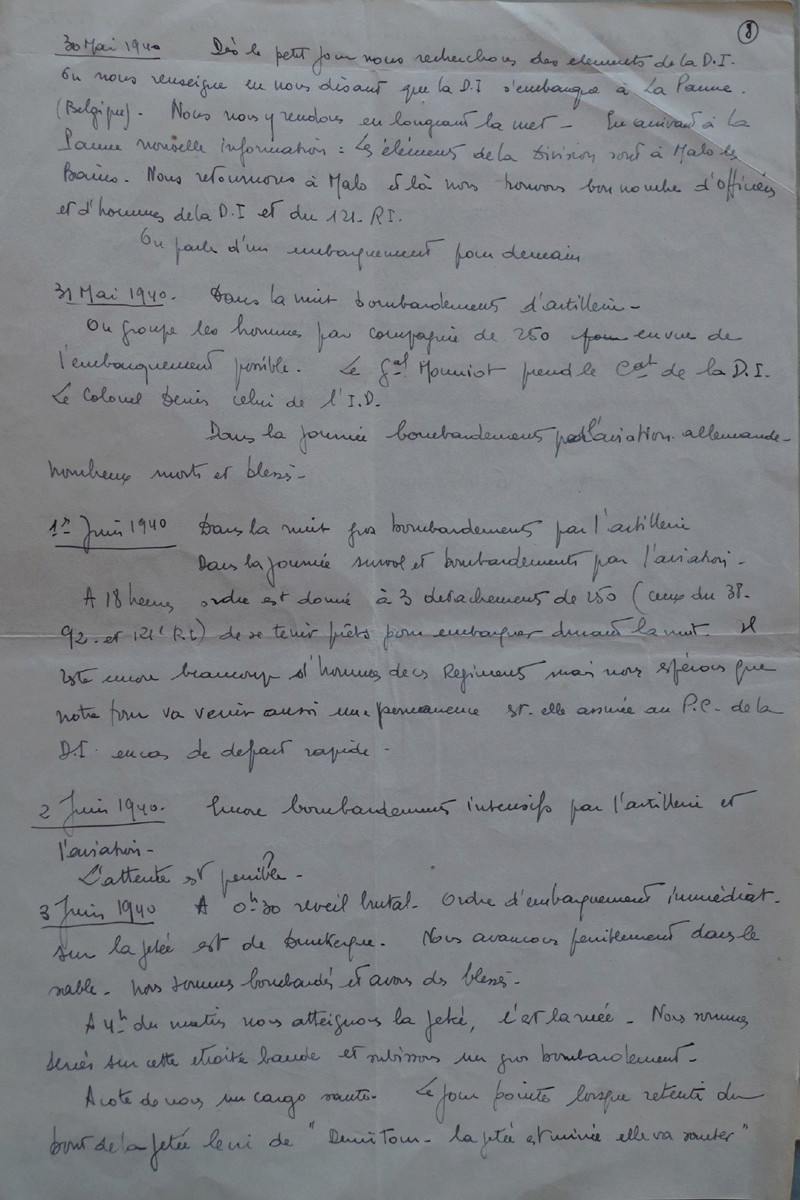 8
30 Mai 1940 Dès le petit jour nous recherchons des elements de la D.I.
On nous renseigne en nous disant que la D.I s'embarque à La Panne.
(Belgique). Nous nous y rendons en longeant la mer - En arrivant à la
Panne nouvelle information : Les éléments de la Division sont à Malo les
Bains. Nous retournons à Malo et là nous trouvons bon nombre d'officiers
et d'hommes de la D.I et du 121. RI.
On parle d'un embarquement pour demain
31 Mai 1940. Dans la nuit bombardements d'artillerie -
On groupe les hommes par compagnie de 250 en vue de
l'embarquement possible. Le Gal Mouniot prend le Cdt de la D.I.
Le Colonel Denis celui de l'I.D.
Dans la journée bombardements par l'aviation allemande -
Nombreux morts et blessés -
1er Juin 1940 Dans la nuit gros bombardements par l'artillerie
Dans la journée survol et bombardements par l'aviation -
A 18 heures ordre est donné à 3 detachements de 250 (ceux du 38-
92 et 121e R.I.) de se tenir prêts pour embarquer durant la nuit. Il
reste encore beaucoup d'hommes de ces Regiments mais nous espérons que
notre tour va venir aussi une permanence est-elle assurée au P.C. de la
D.I. en cas de depart rapide -
2 Juin 1940. Encore bombardements intensifs par l'artillerie et
l'aviation -
L'attente est penible -
?
3 Juin 1940 A 0h30 reveil brutal. Ordre d'embarquement immédiat -
sur la jetée est de Dunkerque. Nous avancons peniblement dans le
sable - nous sommes bombardés et avons des blessés -
A 4h du matin nous atteignons la jetée, c'est la ruée - Nous sommes
serrés sur cette etroite bande et subissons un gros bombardement -
A cote de nous un cargo saute - Le jour pointe lorsque retenti du
bout de la jetée le cri de " Demi Tour - la jetée est minée elle va sauter "